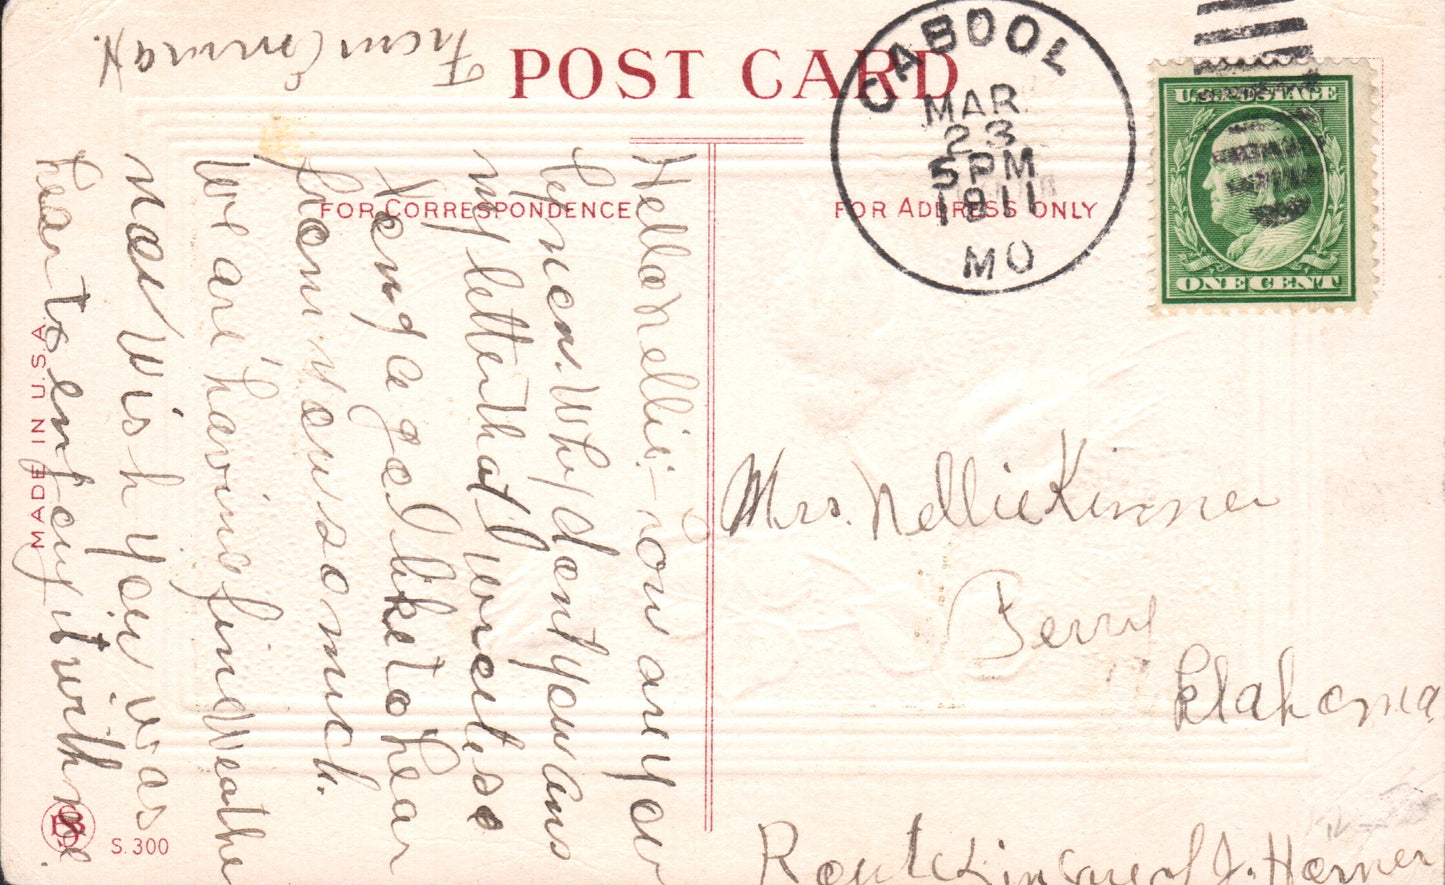 POST CARD
CABOOL
MAR.
23
5 PM
1911
MO
U.S. POSTAGE
ONE CENT
FOR CORRESPONDENCE
FOR ADDRESS ONLY
Hello Nellie:- how are you
by now. Why dont you ans
my letter that I wrote so
long ago. I like to hear
from you so much.
We are having fine Weather
now wish you was
hear to enjoy it with me.
From Emma H.
Mrs. Nellie Kinner
Perry
Oklahoma
Route
of J. Horner
MADE IN U.S.A.
S. 300